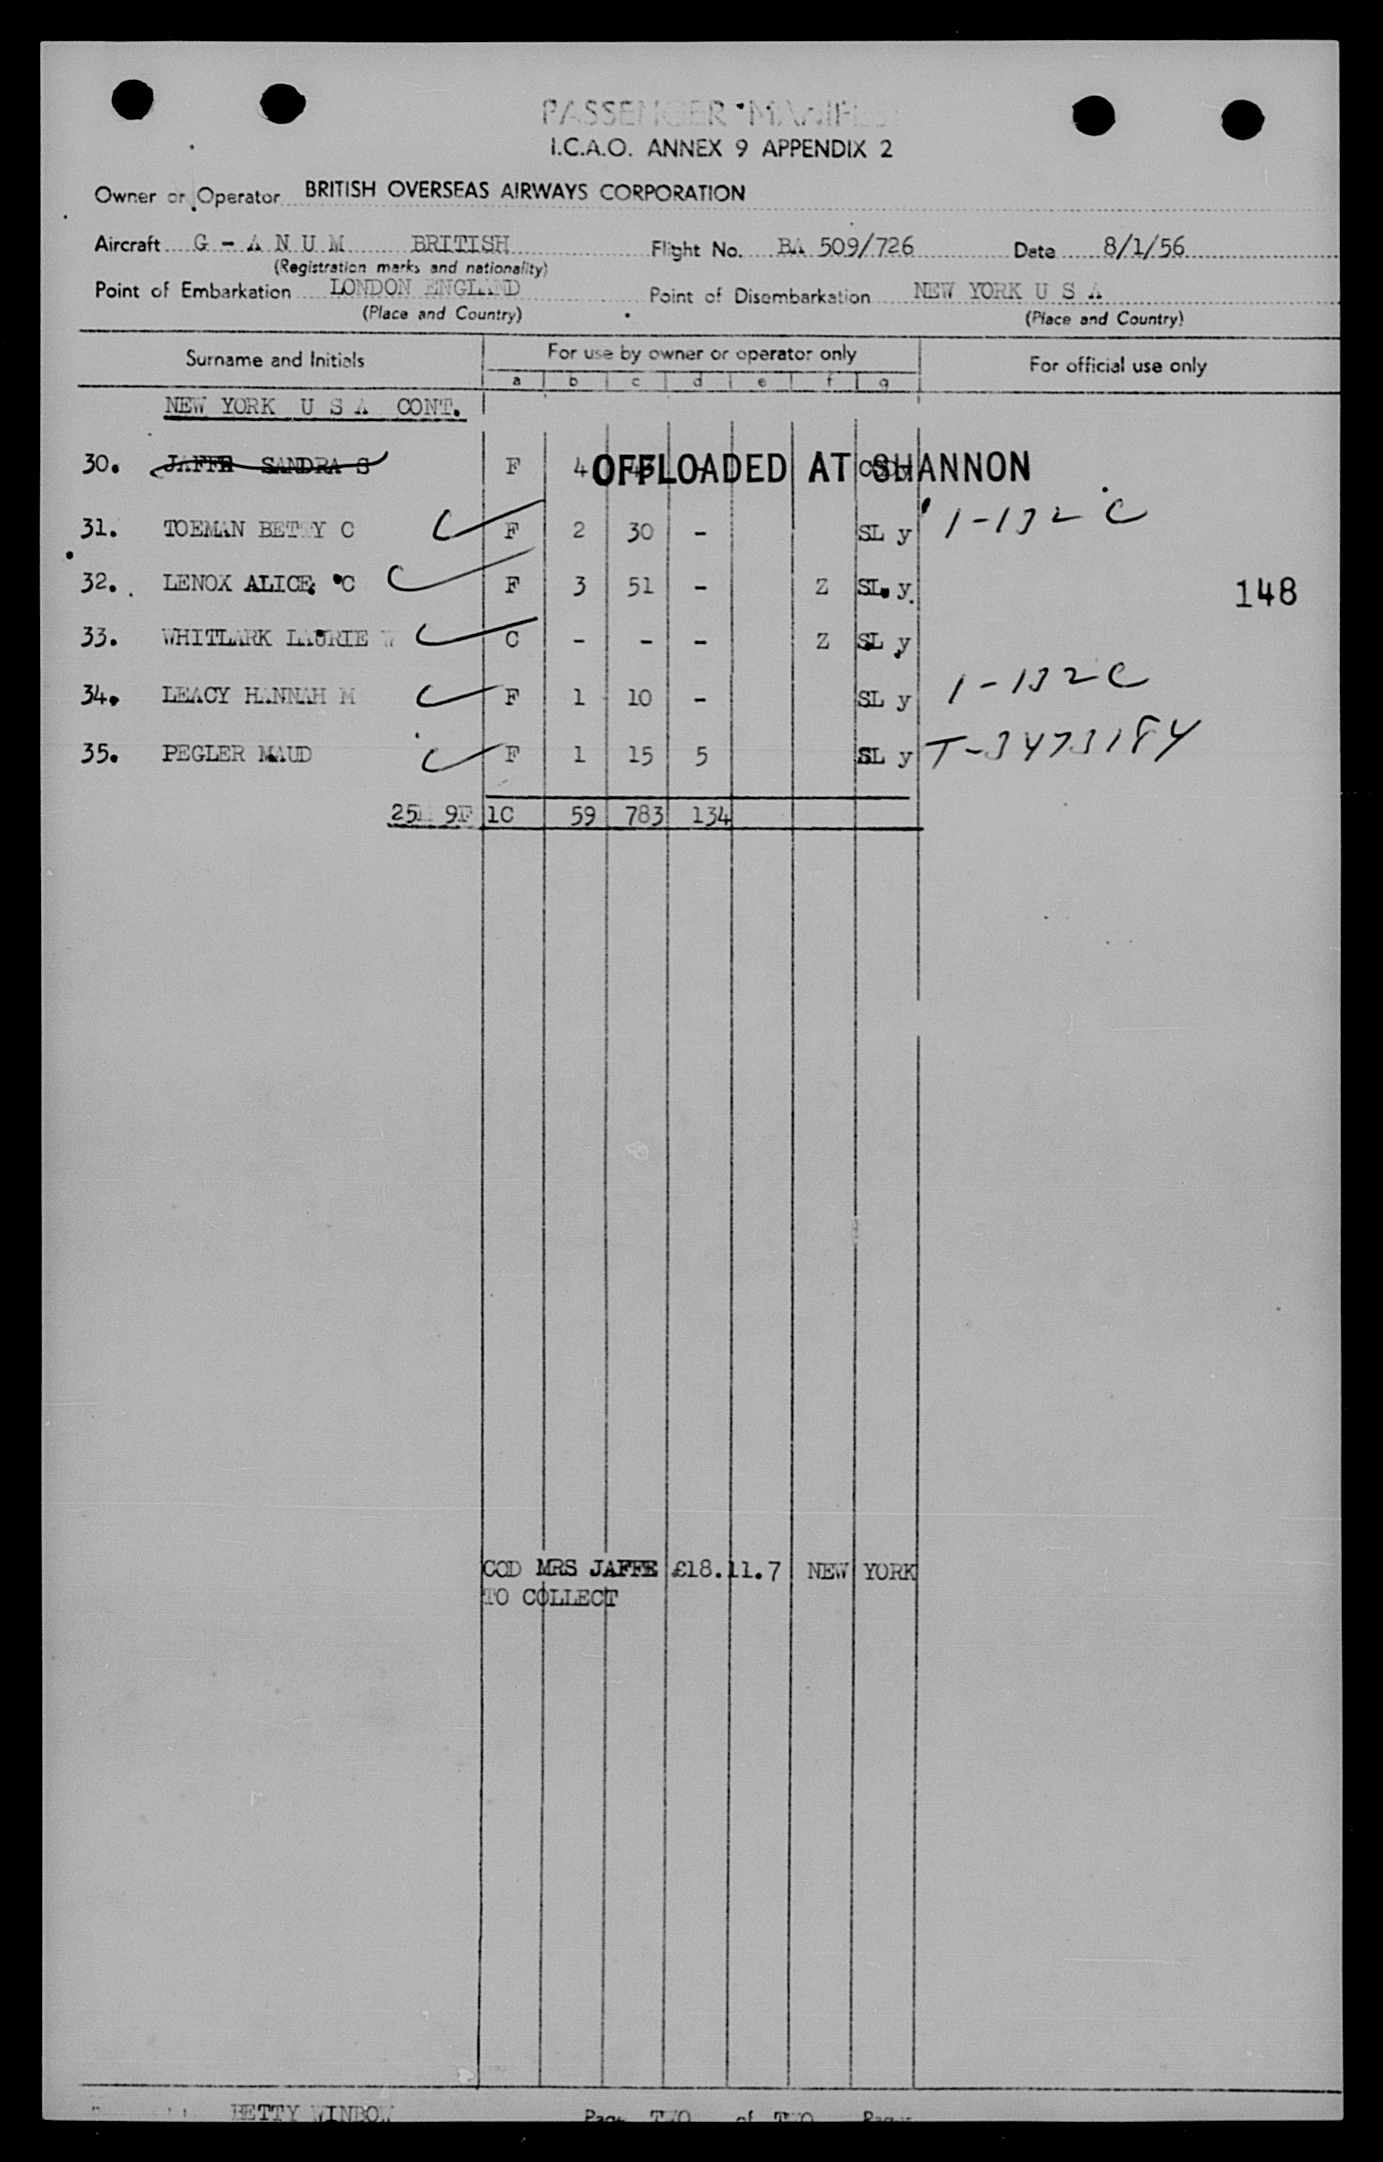 PASSENGER MANIFEST
I.C.A.O. ANNEX 9 APPENDIX 2
Owner or Operator BRITISH OVERSEAS AIRWAYS CORPORATION
Aircraft G - A N U M BRITISH Flight No. BA 509/726 Date 8/1/56
(Registration marks and nationality)
Point of Embarkation LONDON ENGLAND Point of Disembarkation NEW YORK U S A
(Place and Country) (Place and Country)
Surname and Initials For use by owner or operator only For official use only
a b c d e f g
NEW YORK U S A CONT.
30. JAFFE SANDRA S F 4 OFFLOADED AT SHANNON
31. TOEMAN BETTY C C F 2 30 - SL y 1-132 C
32. LENOX ALICE C C F 3 51 - Z SL y 148
33. WHITLARK LAURIE W C C - - - Z SL y
34. LEACY HANNAH M C F 1 10 - SL y 1-132 C
35. PEGLER MAUD C F 1 15 5 SL y T-3473184
25 9F 1C 59 783 134
COD MRS JAFFE £18.11.7 NEW YORK
TO COLLECT
BETTY WINBOW Page TWO of TWO Pages